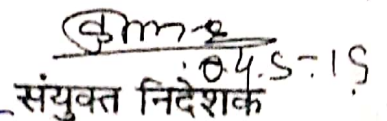 04.5.15
संयुक्त निदेशक